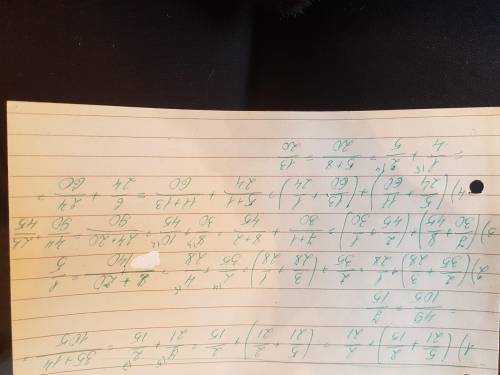 1) (5/21 + 2/15) + 2/21 = (5/21 + 2/21) + 2/15 = 7/21 + 2/15 = 35+14/105 =
= 49/105 = 7/15
2) (2/35 + 3/28) + 1/28 = 2/35 + (3/28 + 1/28) = 2/35 + 4/28 = 8+20/140 = 1/5
(7/30 + 8/45) + (2/45 + 1/30) = 7+1/30 + 8+2/45 = 8/30 + 10/45 = 24+20/90 = 44/90 = 22/45
4) (5/24 + 11/60) + (13/60 + 1/24) = 5+1/24 + 11+13/60 = 6/24 + 24/60 =
= 1/4 + 2/5 = 5+8/20 = 13/20